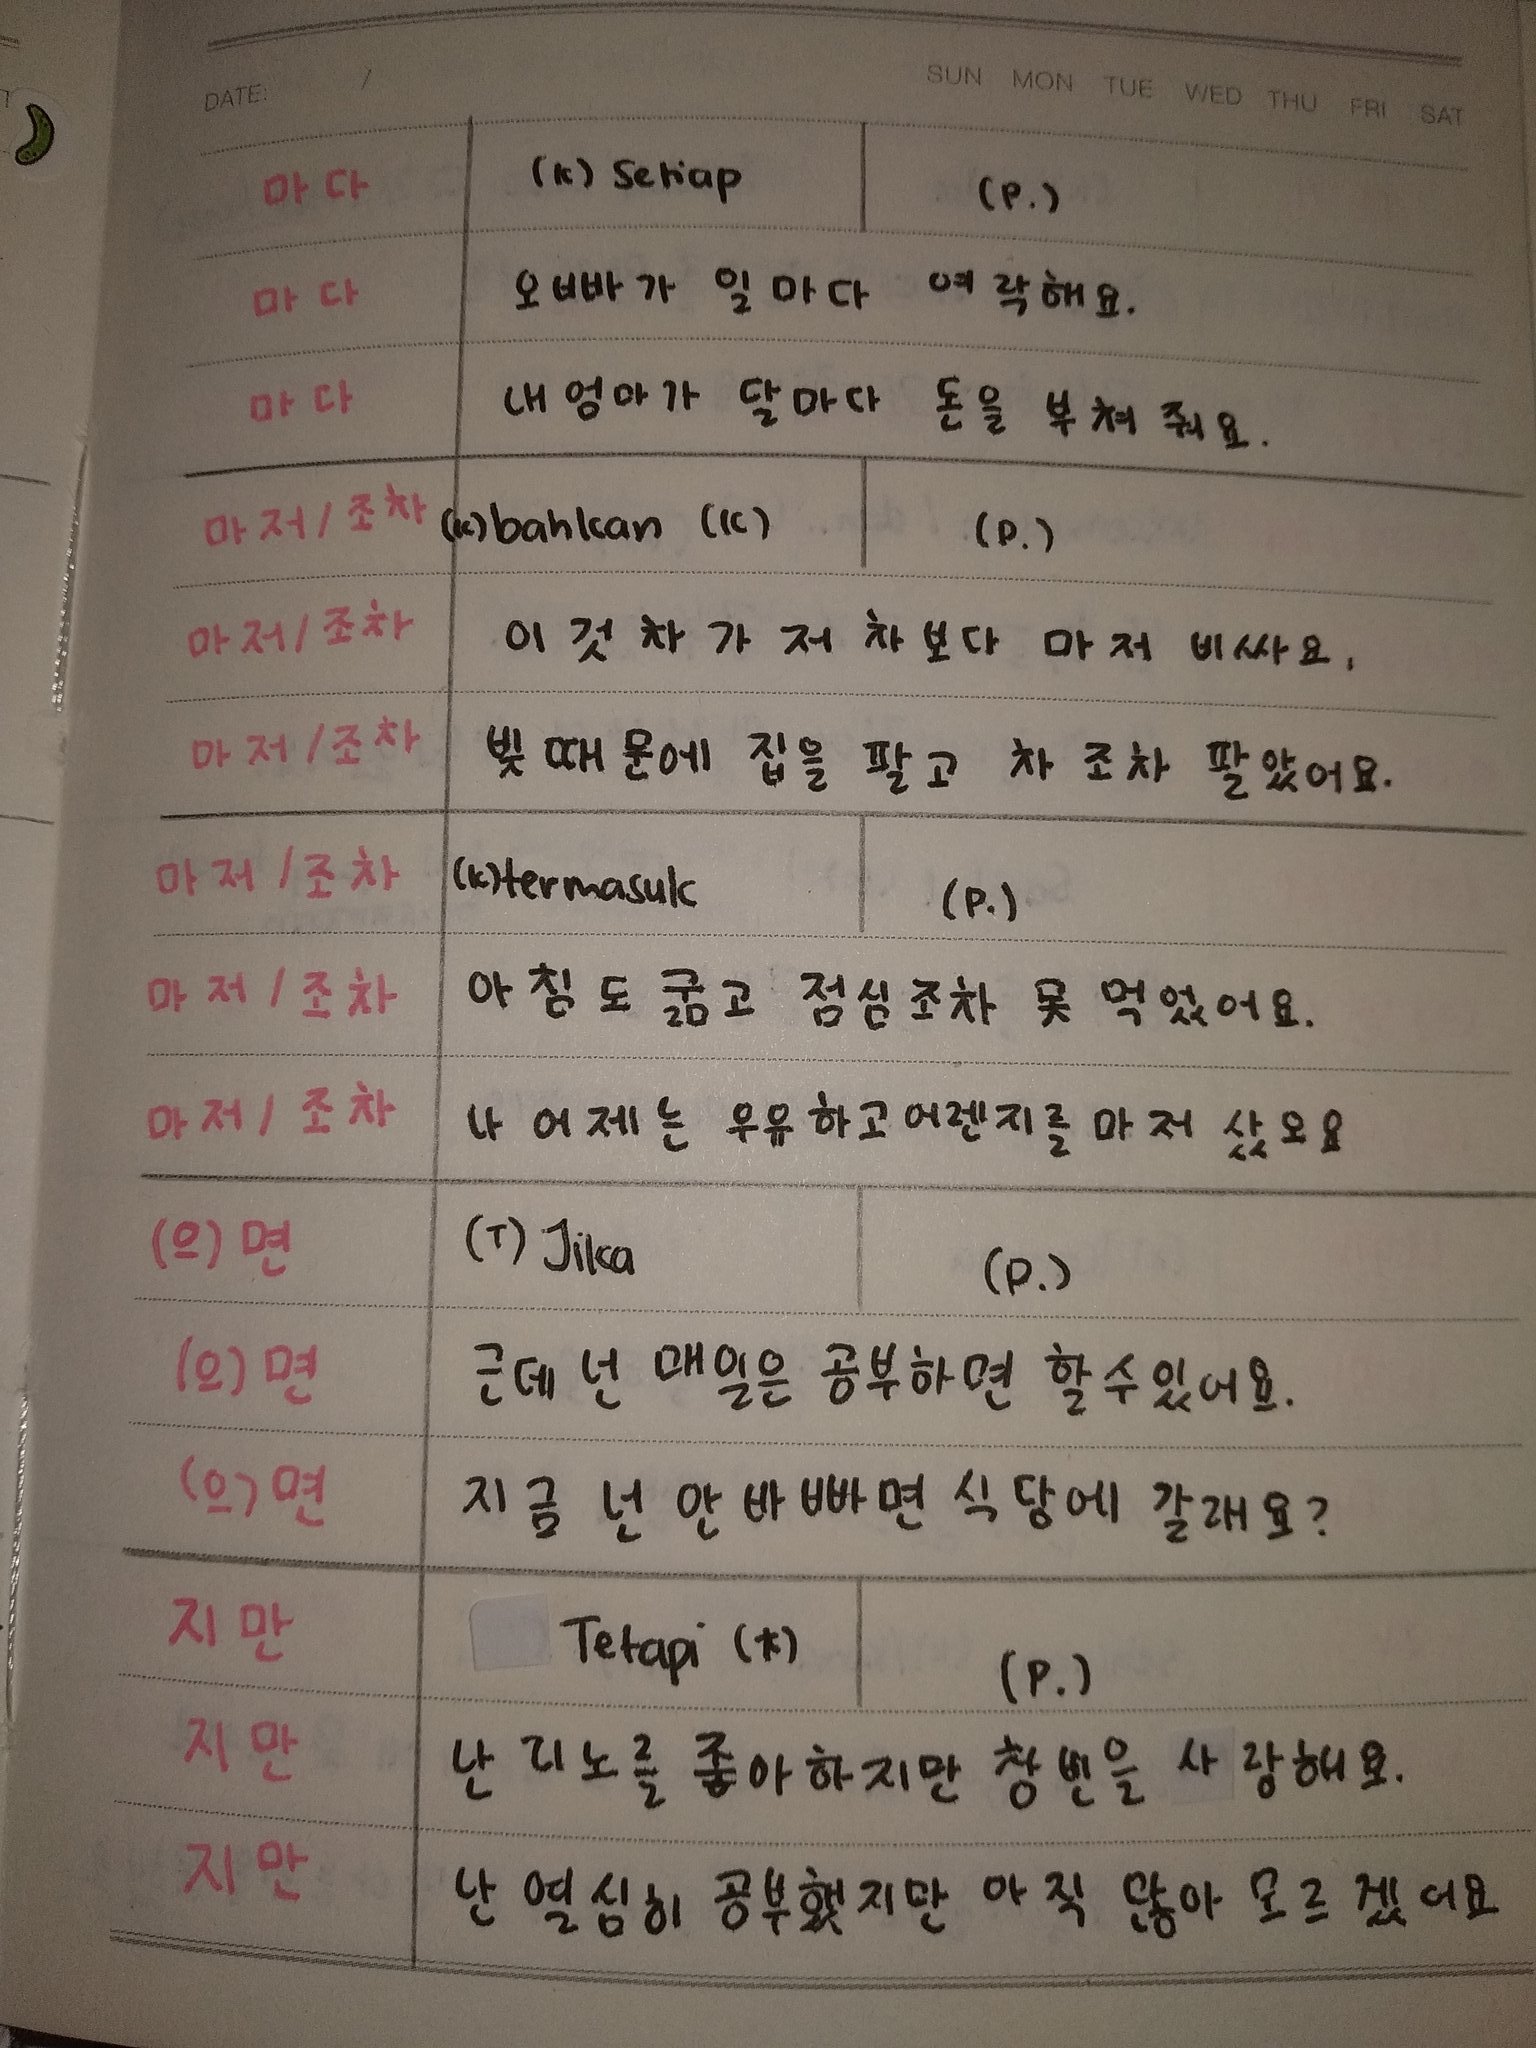 DATE: / SUN MON TUE WED THU FRI SAT
마다 (k) Setiap (P.)
마다 오빠가 일마다 여락해요.
마다 내 엄마가 달마다 돈을 부쳐 줘요.
마저/조차 (k) bahkan (k) (P.)
마저/조차 이것 차가 저 차보다 마저 비싸요.
마저/조차 빚 때문에 집을 팔고 차 조차 팔았어요.
마저/조차 (k) termasuk (P.)
마저/조차 아침도 굶고 점심조차 못 먹었어요.
마저/조차 나 어제는 우유하고 어렌지를 마저 샀오요
(으)면 (T) Jika (P.)
(으)면 근데 넌 매일은 공부하면 할수있어요.
(으)면 지금 넌 안 바빠면 식당에 갈래요?
지만 Tetapi (x) (P.)
지만 난 리노를 좋아하지만 창빈을 사랑해요.
지만 난 열심히 공부했지만 아직 많아 모르겠어요